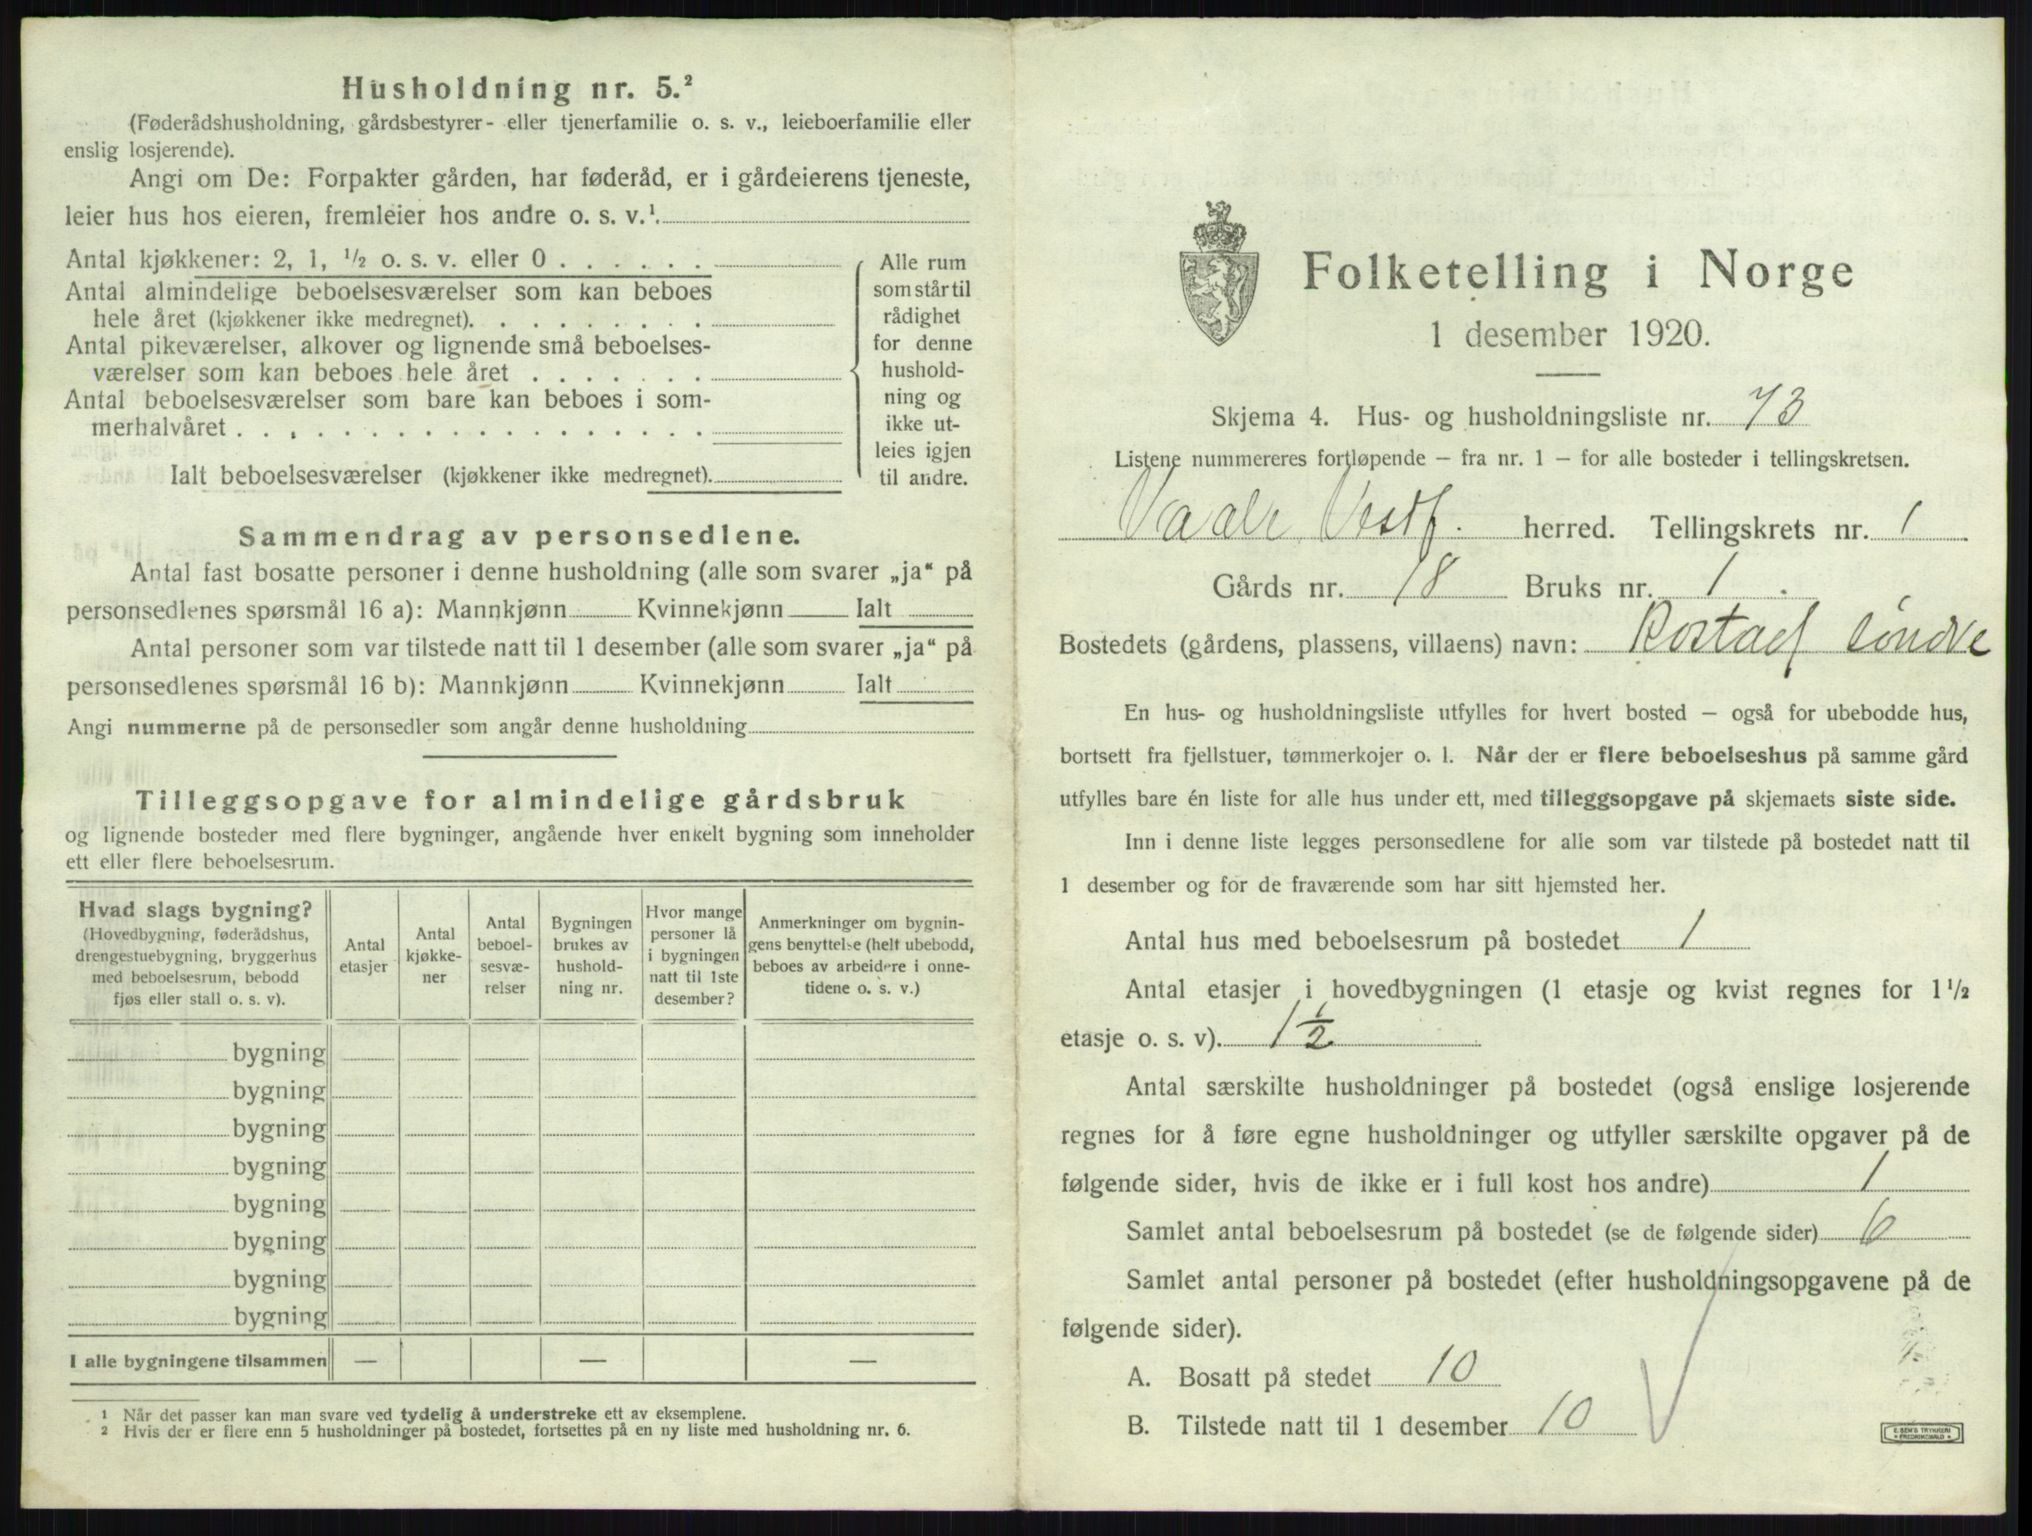 Husholdning nr. 5.²
(Føderådshusholdning, gårdsbestyrer- eller tjenerfamilie o. s. v., leieboerfamilie eller
enslig losjerende).
Angi om De: Forpakter gården, har føderåd, er i gårdeierens tjeneste,
leier hus hos eieren, fremleier hos andre o. s. v.¹
Antal kjøkkener: 2, 1, ½ o. s. v. eller 0 . . . . . .
Antal almindelige beboelsesværelser som kan beboes
hele året (kjøkkener ikke medregnet). . . . . . . . .
Antal pikeværelser, alkover og lignende små beboelses-
værelser som kan beboes hele året . . . . . . .
Antal beboelsesværelser som bare kan beboes i som-
merhalvåret . . . . . . . . . . . . . . . . . .
Ialt beboelsesværelser (kjøkkener ikke medregnet).
Alle rum
som står til
rådighet
for denne
hushold-
ning og
ikke ut-
leies igjen
til andre.
Sammendrag av personsedlene.
Antal fast bosatte personer i denne husholdning (alle som svarer „ja“ på
personsedlenes spørsmål 16 a): Mannkjønn Kvinnekjønn Ialt
Antal personer som var tilstede natt til 1 desember (alle som svarer „ja“ på
personsedlenes spørsmål 16 b): Mannkjønn Kvinnekjønn Ialt
Angi nummerne på de personsedler som angår denne husholdning
Tilleggsopgave for almindelige gårdsbruk
og lignende bosteder med flere bygninger, angående hver enkelt bygning som inneholder
ett eller flere beboelsesrum.
Hvad slags bygning?
(Hovedbygning, føderådshus,
drengestuebygning, bryggerhus
med beboelsesrum, bebodd
fjøs eller stall o. s. v).
Antal
etasjer
Antal
kjøkke-
ner
Antal
beboel-
sesvæ-
relser
Bygningen
brukes av
hushold-
ning nr.
Hvor mange
personer lå
i bygningen
natt til 1ste
desember?
Anmerkninger om bygnin-
gens benyttelse (helt ubebodd,
beboes av arbeidere i onne-
tidene o. s. v.)
bygning
bygning
bygning
bygning
bygning
bygning
bygning
bygning
I alle bygningene tilsammen — — —
¹ Når det passer kan man svare ved tydelig å understreke ett av eksemplene.
² Hvis der er flere enn 5 husholdninger på bostedet, fortsettes på en ny liste med husholdning nr. 6.
Folketelling i Norge
1 desember 1920.
Skjema 4. Hus- og husholdningsliste nr. 73
Listene nummereres fortløpende – fra nr. 1 – for alle bosteder i tellingskretsen.
Vaale Vestf. herred. Tellingskrets nr. 1
Gårds nr. 18 Bruks nr. 1
Bostedets (gårdens, plassens, villaens) navn: Rostad søndre
En hus- og husholdningsliste utfylles for hvert bosted – også for ubebodde hus,
bortsett fra fjellstuer, tømmerkojer o. l. Når der er flere beboelseshus på samme gård
utfylles bare én liste for alle hus under ett, med tilleggsopgave på skjemaets siste side.
Inn i denne liste legges personsedlene for alle som var tilstede på bostedet natt til
1 desember og for de fraværende som har sitt hjemsted her.
Antal hus med beboelsesrum på bostedet 1
Antal etasjer i hovedbygningen (1 etasje og kvist regnes for 1½
etasje o. s. v). 1½
Antal særskilte husholdninger på bostedet (også enslige losjerende
regnes for å føre egne husholdninger og utfyller særskilte opgaver på de
følgende sider, hvis de ikke er i full kost hos andre) 1
Samlet antal beboelsesrum på bostedet (se de følgende sider) 6
Samlet antal personer på bostedet (efter husholdningsopgavene på de
følgende sider).
A. Bosatt på stedet 10
B. Tilstede natt til 1 desember 10